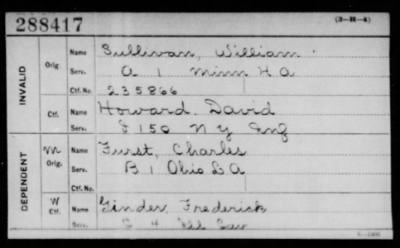 288417 (3-H-4)
INVALID
Orig. Name Sullivan, William
Serv. A 1 Minn H A
Ctf. No. 235866
Ctf. Name Howard David
Serv. I 150 N Y Inf
DEPENDENT
m Orig. Name Furst, Charles
Serv. B 1 Ohio L A
Ctf. No.
W Ctf. Name Ginder, Frederick
Serv. 4